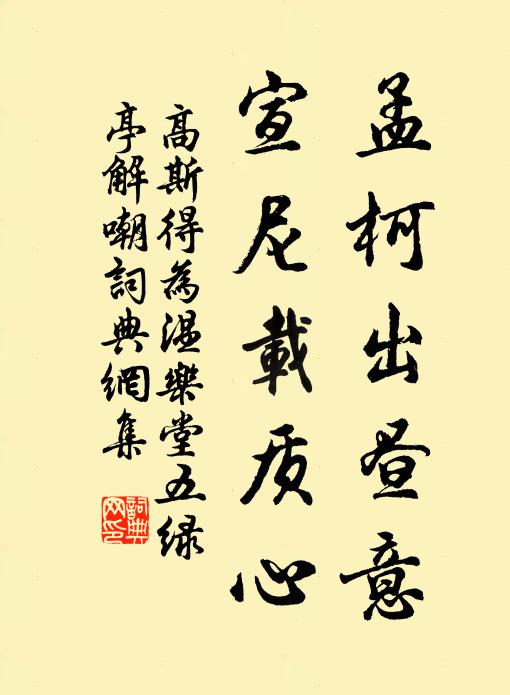 孟柯出昼意
宣尼載质心
高斯得為温樂堂五绿
亭解嘲詞典網集
詞典
网印